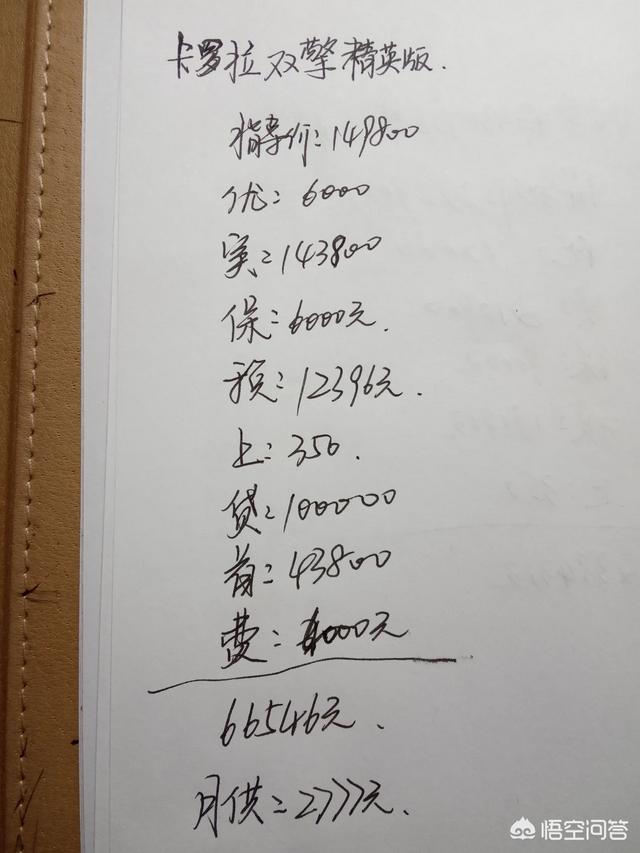 卡罗拉双擎精英版.
指导价:149800
优:6000
实:143800
保:6000元.
税:12396元.
上:350.
贷:100000
首:43800
费:4000元
66546元.
月供=2777元.
悟空问答